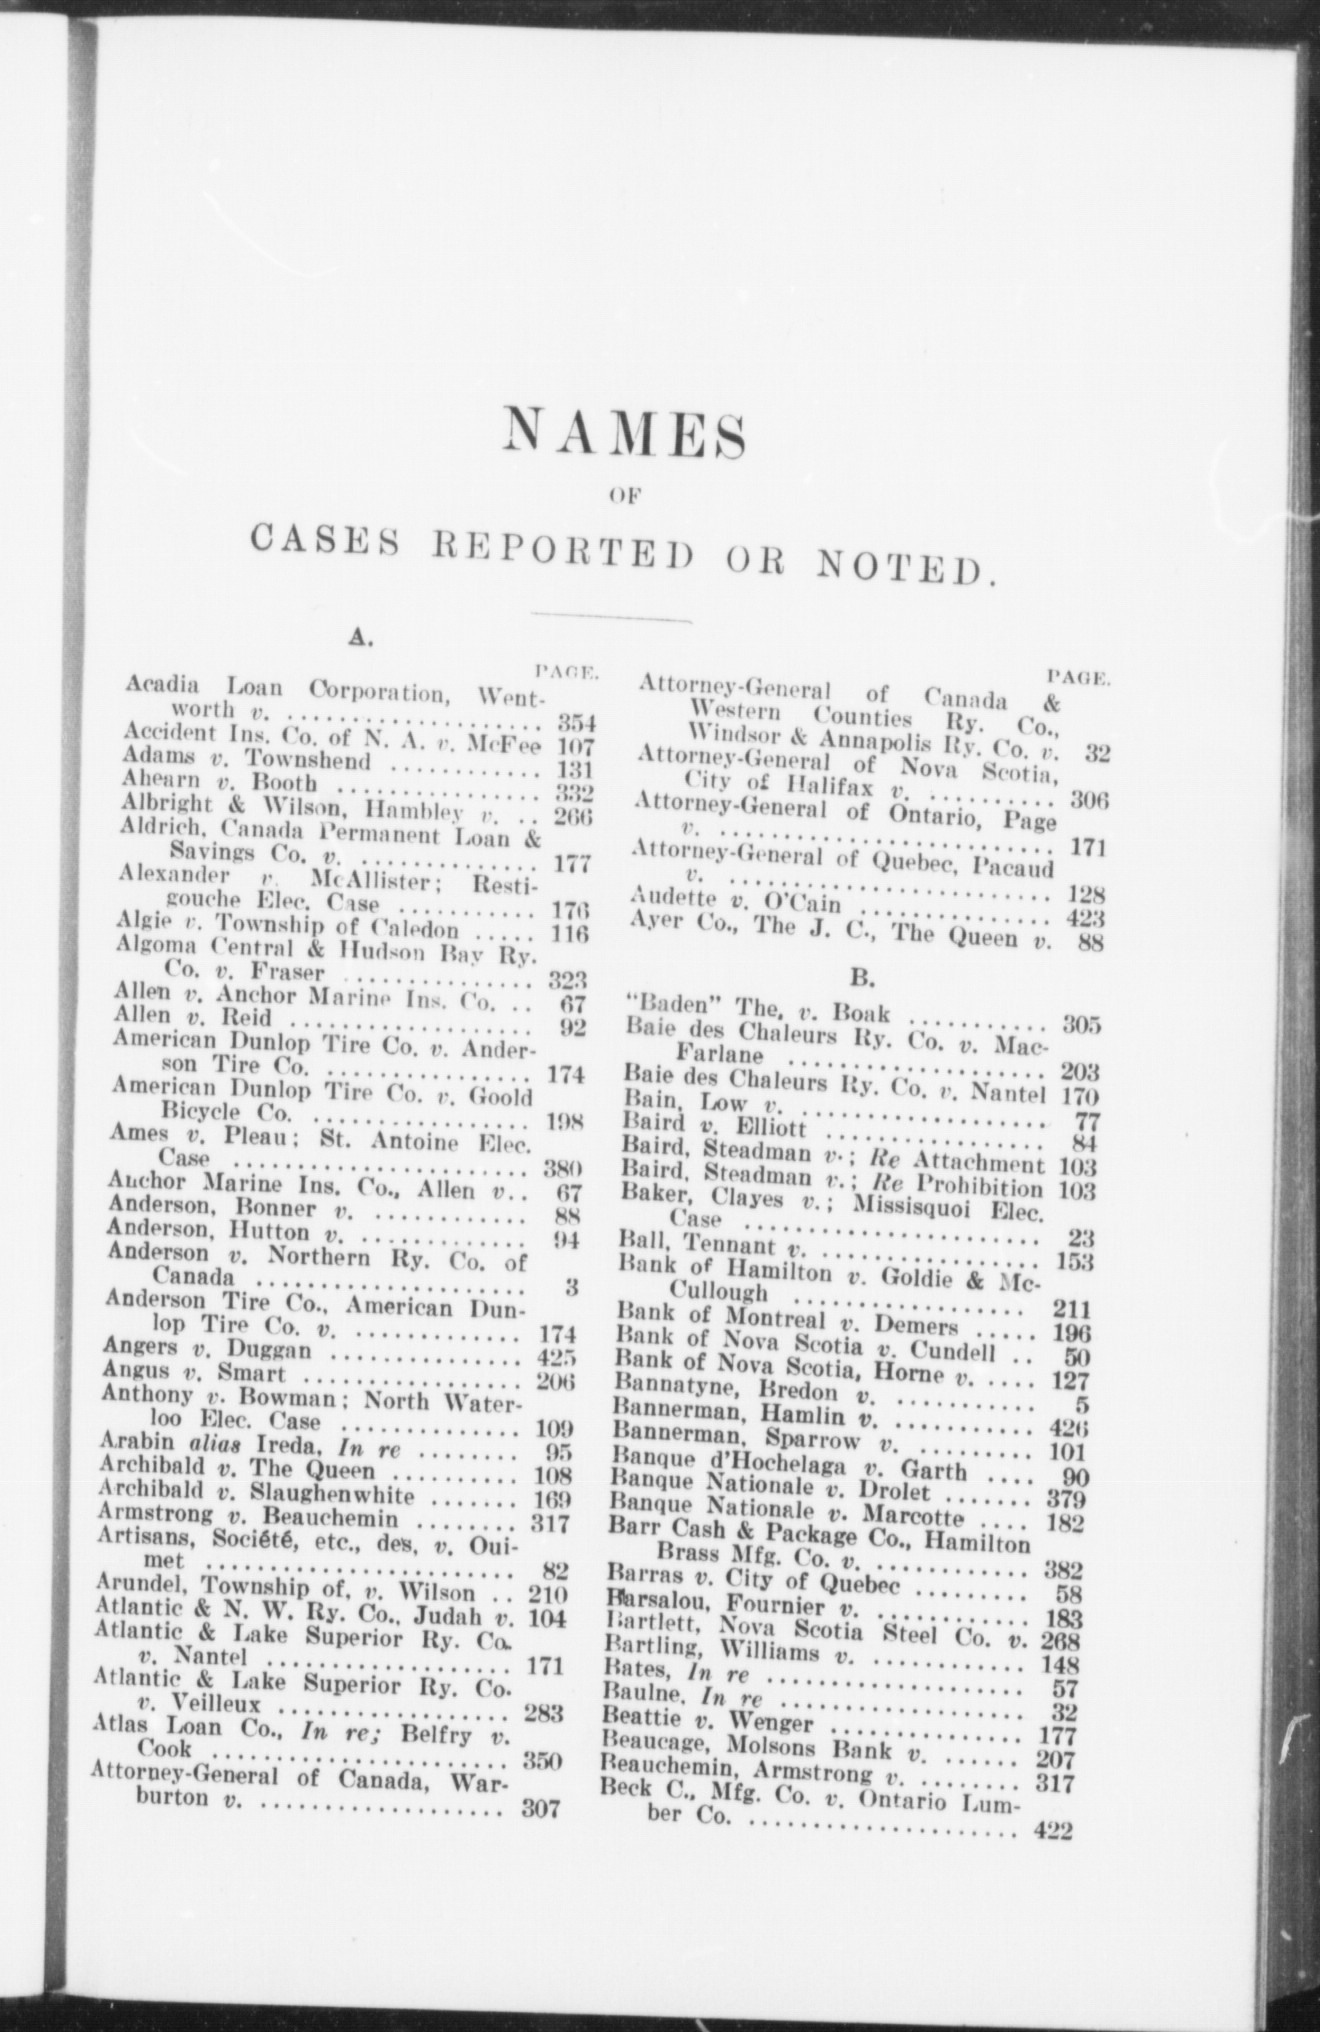 NAMES
OF
CASES REPORTED OR NOTED.
A.
PAGE.
Acadia Loan Corporation, Went-
worth v. .................... 354
Accident Ins. Co. of N. A. v. McFee 107
Adams v. Townshend ............ 131
Ahearn v. Booth ................ 332
Albright & Wilson, Hambley v. .. 266
Aldrich, Canada Permanent Loan &
Savings Co. v. .............. 177
Alexander v. McAllister; Resti-
gouche Elec. Case ........... 176
Algie v. Township of Caledon ..... 116
Algoma Central & Hudson Bay Ry.
Co. v. Fraser ............... 323
Allen v. Anchor Marine Ins. Co. .. 67
Allen v. Reid ................... 92
American Dunlop Tire Co. v. Ander-
son Tire Co. ................ 174
American Dunlop Tire Co. v. Goold
Bicycle Co. ................. 198
Ames v. Pleau; St. Antoine Elec.
Case ....................... 380
Anchor Marine Ins. Co., Allen v.. 67
Anderson, Bonner v. ............ 88
Anderson, Hutton v. ............. 94
Anderson v. Northern Ry. Co. of
Canada ..................... 3
Anderson Tire Co., American Dun-
lop Tire Co. v. ............. 174
Angers v. Duggan ............... 425
Angus v. Smart ................. 206
Anthony v. Bowman; North Water-
loo Elec. Case .............. 109
Arabin alias Ireda, In re ........ 95
Archibald v. The Queen .......... 108
Archibald v. Slaughenwhite ....... 169
Armstrong v. Beauchemin ........ 317
Artisans, Société, etc., des, v. Oui-
met ........................ 82
Arundel, Township of, v. Wilson .. 210
Atlantic & N. W. Ry. Co., Judah v. 104
Atlantic & Lake Superior Ry. Co.
v. Nantel ................... 171
Atlantic & Lake Superior Ry. Co.
v. Veilleux .................. 283
Atlas Loan Co., In re; Belfry v.
Cook ....................... 350
Attorney-General of Canada, War-
burton v. ................... 307
PAGE.
Attorney-General of Canada &
Western Counties Ry. Co.,
Windsor & Annapolis Ry. Co. v. 32
Attorney-General of Nova Scotia,
City of Halifax v. .......... 306
Attorney-General of Ontario, Page
v. .......................... 171
Attorney-General of Quebec, Pacaud
v. ......................... 128
Audette v. O'Cain ............... 423
Ayer Co., The J. C., The Queen v. 88
B.
"Baden" The, v. Boak ........... 305
Baie des Chaleurs Ry. Co. v. Mac-
Farlane .................... 203
Baie des Chaleurs Ry. Co. v. Nantel 170
Bain, Low v. ................... 77
Baird v. Elliott ................. 84
Baird, Steadman v.; Re Attachment 103
Baird, Steadman v.; Re Prohibition 103
Baker, Clayes v.; Missisquoi Elec.
Case ....................... 23
Ball, Tennant v. ................. 153
Bank of Hamilton v. Goldie & Mc-
Cullough .................. 211
Bank of Montreal v. Demers ..... 196
Bank of Nova Scotia v. Cundell .. 50
Bank of Nova Scotia, Horne v. .... 127
Bannatyne, Bredon v. ........... 5
Bannerman, Hamlin v. ........... 426
Bannerman, Sparrow v. ......... 101
Banque d'Hochelaga v. Garth .... 90
Banque Nationale v. Drolet ....... 379
Banque Nationale v. Marcotte .... 182
Barr Cash & Package Co., Hamilton
Brass Mfg. Co. v. ............ 382
Barras v. City of Quebec ......... 58
Barsalou, Fournier v. ............ 183
Bartlett, Nova Scotia Steel Co. v. 268
Bartling, Williams v. ............ 148
Bates, In re .................... 57
Baulne, In re ................... 32
Beattie v. Wenger ............... 177
Beaucage, Molsons Bank v. ...... 207
Beauchemin, Armstrong v. ........ 317
Beck C., Mfg. Co. v. Ontario Lum-
ber Co. ..................... 422